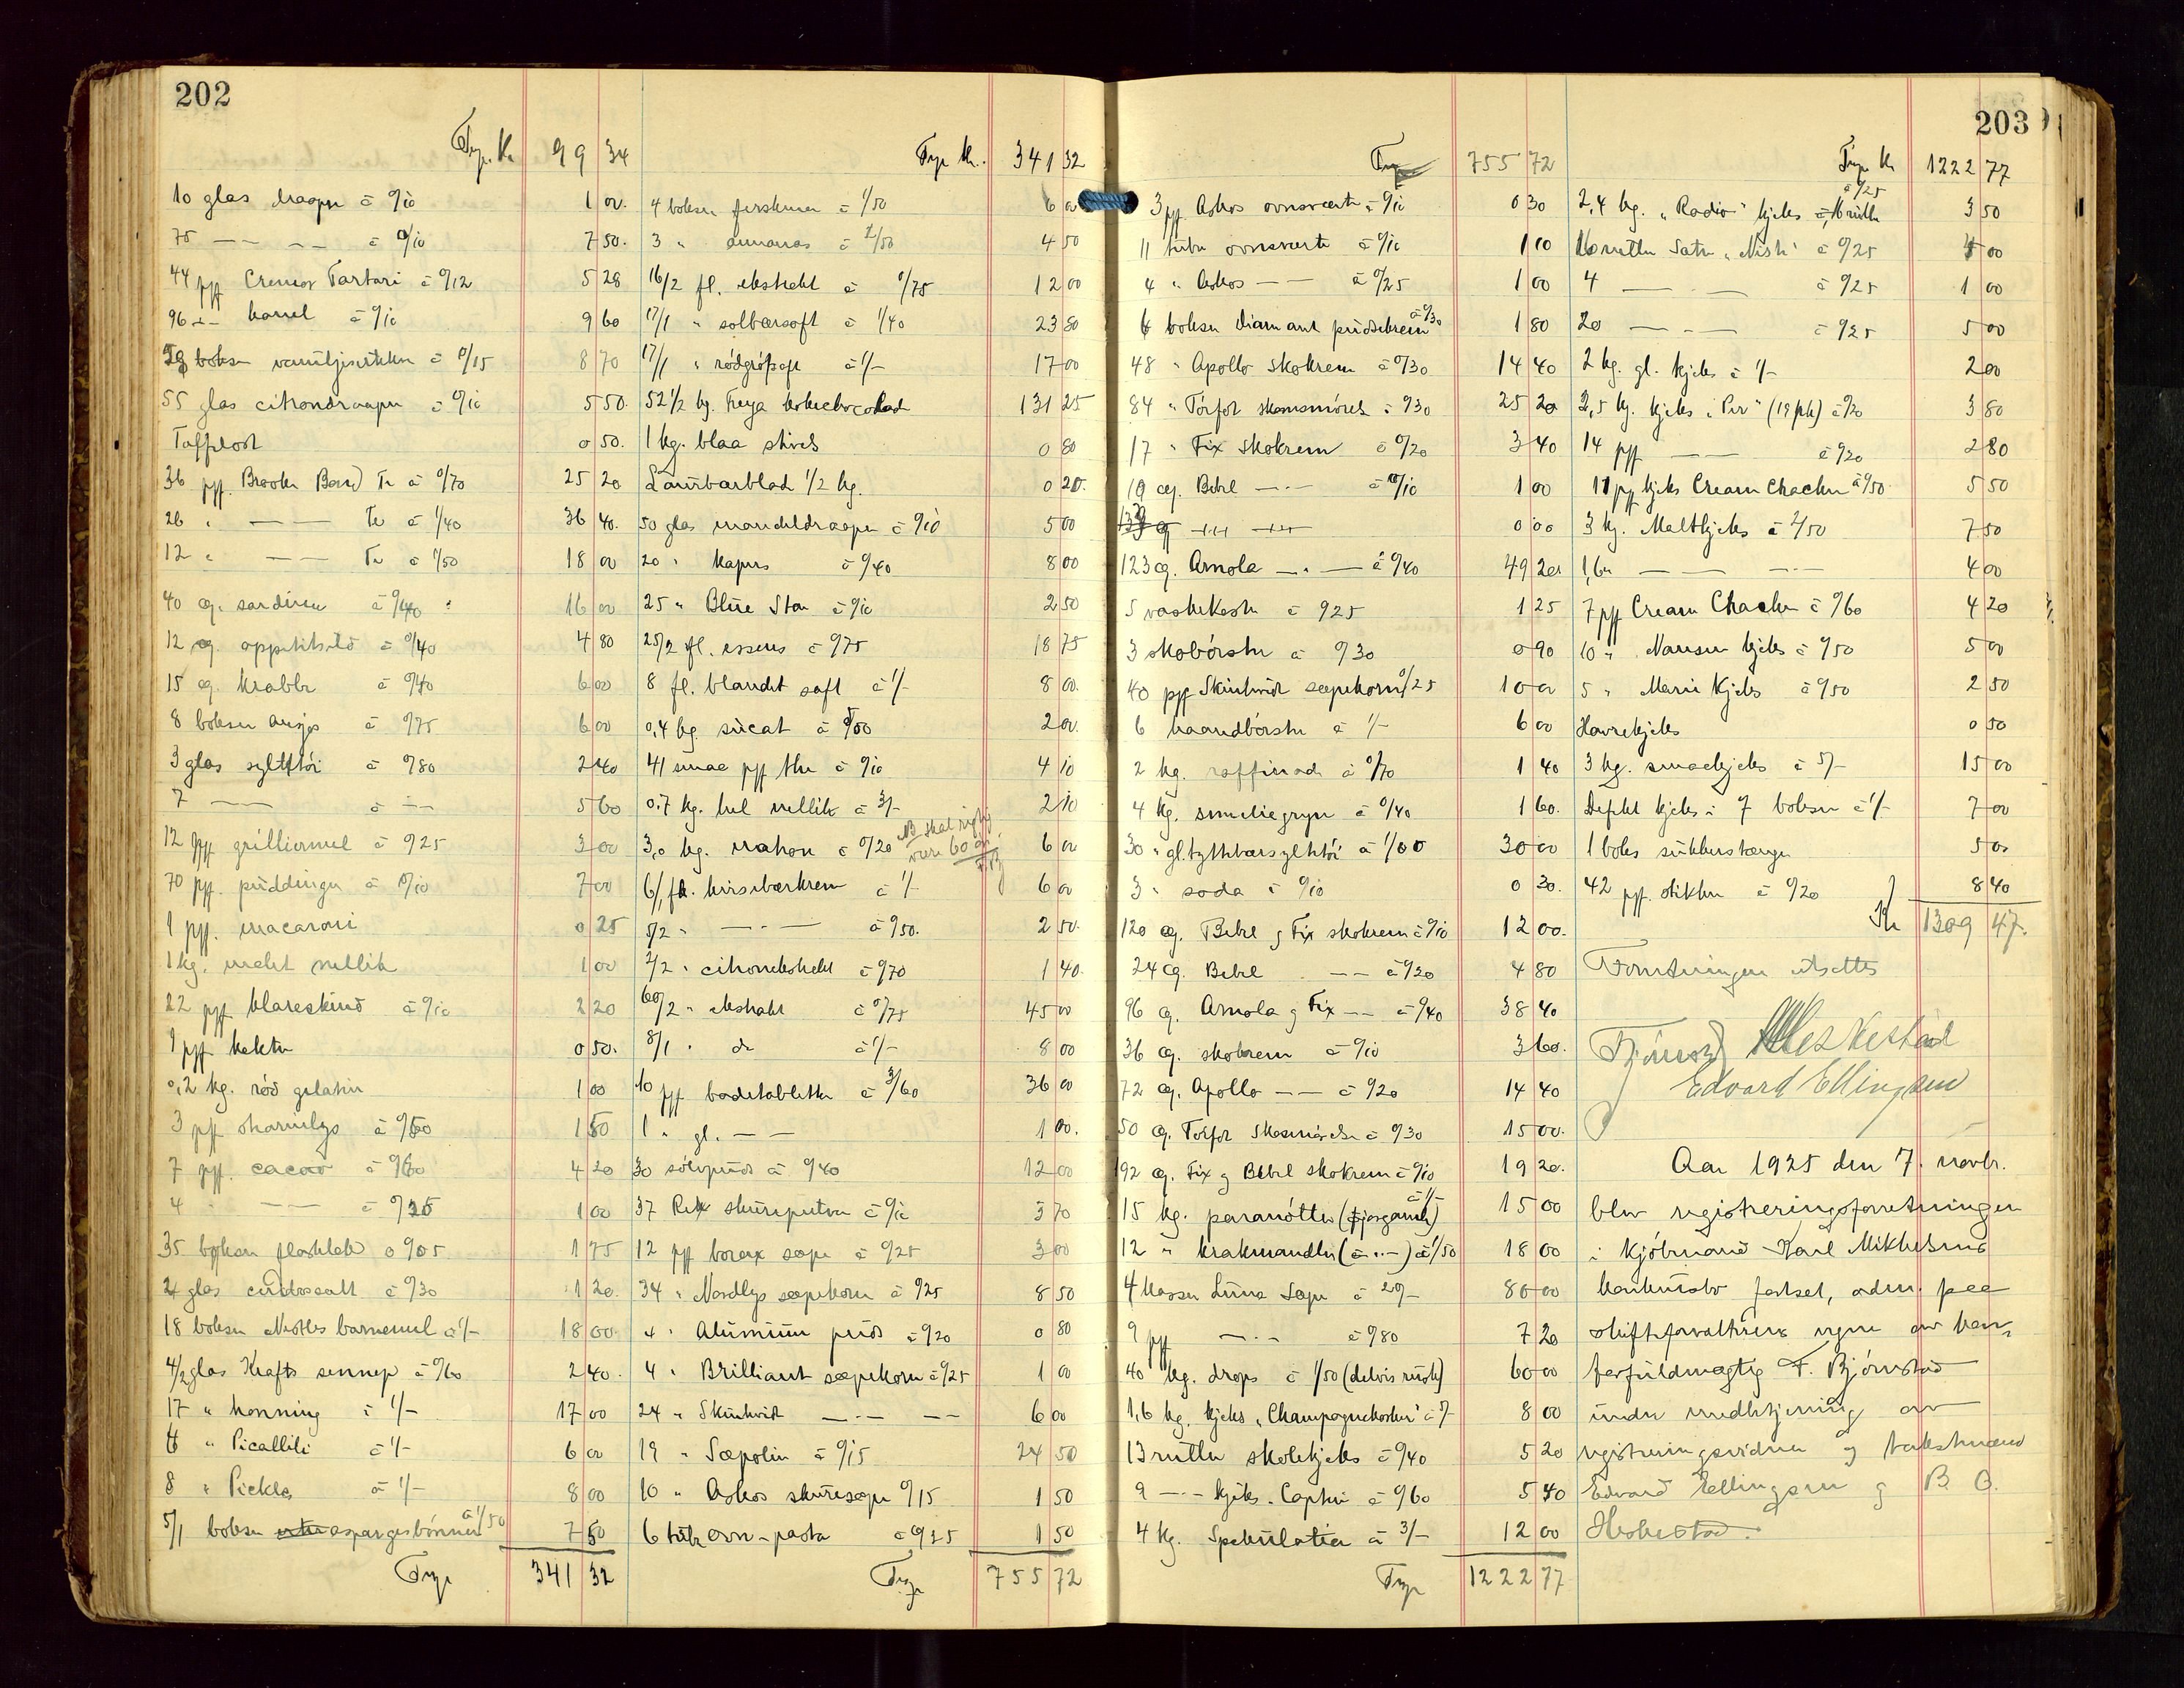 202
Trp. Kr 99 34
10 glas draaper à 0/10 1 00.
75 — — — — à 0/10 7 50.
44 pff Cremor Tartari à 0/12 5 28
96 -"- kanel à 0/10 9 60
58 bokser vaniljesukker à 0/15 8 70
55 glas citrondraaper à 0/10 5 50.
Toffelost 0 50.
36 pff. Brooke Bond Te à 0/70 25 20
26 " — — Te à 1/40 36 40.
12 " — — Te à 1/50 18 00
40 eg. sardiner à 0/40 16 00
12 eg. appetitsild à 0/40 4 80
15 eg. krabbe à 0/40 6 00
8 bokser ansjos à 0/75 6 00
3 glas syltetöi à 0/80 2 40
7 — — à — 5 60
12 pff grilliermel à 0/25 3 00
70 pff. puddinger à 0/10 7 00
1 pff. macaroni 0 25
1 kg. malt nellik 1 00
22 pff klareskind à 0/10 2 20
1 pff kektr 0 50.
0,2 kg. röd gelatin 1 00
3 pff stormlys à 0/60 1 80
7 pff. cacao à 0/60 4 20
4 " — — à 0/25 1 00
35 bokser flasklak à 0/05 1 75
4 glas cindresalt à 0/30 1 20
18 bokser Nestles barnemel à 1/- 18 00
4/2 glas Krafts sennep à 0/60 2 40.
17 " honning à 1/- 17 00
6 " Picallili à 1/- 6 00
8 " Pickles à 1/- 8 00
5/1 bokser aspargesbönner à 1/50 7 50
Trp 341 32
Trp Kr. 341 32
4 bokser ferskener à 1/50 6 00
3 " annanas à 1/50 4 50
16/2 fl. ekstrakt à 0/75 12 00
17/1 " solbærsaft à 1/40 23 80
17/1 " rödgrötsaft à 1/- 17 00
52 1/2 kg. Freya kokechocolad 131 25
1 kg. blaa stivels 0 80
Laurbærblad 1/2 kg. 0 20.
50 glas mandeldraaper à 0/10 5 00
20 " kapers à 0/40 8 00
25 " Blue Star à 0/10 2 50
25/2 fl. essens à 0/75 18 75
8 fl. blandet saft à 1/- 8 00.
0,4 kg. sucat à 5/00 2 00.
41 smaa pff the à 0/10 4 10
0.7 kg. hel nellik à 3/- 2 10
3,0 kg. natron à 0/20 NB skal rigtig være 60 öre 6 00
6/1 fl. kirsebærkrem à 1/- 6 00
5/2 " — — — à 0/50. 2 50.
2/2 " citronekstrakt à 0/70 1 40.
60/2 " ekstrakt à 0/75 45 00
8/1 " do à 1/- 8 00
10 pff badetabletter à 3/60 36 00
1 " gl. — — 1 00.
30 sölvpuds à 0/40 12 00
37 Rex skurepulver à 0/10 3 70
12 pff borax sæpe à 0/25 3 00
34 " Nordlys sæpekorn à 0/25 8 50
4 " Aluminium puds à 0/20 0 80
4 " Brilliant sæpekorn à 0/25 1 00
24 " Skinhvit — — — — 6 00
19 " Sæpolin à 0/15 24 50
10 " Askos skuresæpe 0/15 1 50
6 tuber ovn-pasta à 0/25 1 50
Trp 755 72
203
Trp 755 72
3 pff Askos ovnsværte à 0/10 0 30
11 tuber ovnsværte à 0/10 1 10
4 " Askos — — à 0/25 1 00
6 bokser Diamant pudsekrem à 0/30 1 80
48 " Apollo Skokrem à 0/30 14 40
84 " Torfot skosmörels à 0/30 25 20
17 " Fix Skokrem à 0/20 3 40
10 eg. Bebel — — à 0/10 1 00
0 00
123 eg. Arnola — . — à 0/40 49 20
5 vaskekoste à 0/25 1 25
3 skobörster à 0/30 0 90
40 pff Skinhvidt sæpekorn 0/25 10 00
6 haandbörster à 1/- 6 00
2 kg. raffinade à 0/70 1 40
4 kg. semuliegryn à 0/40 1 60.
30 " gl. tyttebærsyltetöi à 1/00 30 00
3 " soda à 0/10 0 30.
120 eg. Bebel g Fix skokrem à 0/10 12 00.
24 eg. Bebel — — à 0/20 4 80
96 eg. Arnola g Fix — — à 0/40 38 40
36 eg. skokrem à 0/10 3 60.
72 eg. Apollo — — à 0/20 14 40
50 eg. Torfot Skosmörelse à 0/30 15 00.
192 eg. Fix g Bebel skokrem à 0/10 19 20.
15 kg. paranötter (fjorgamle) à 1/- 15 00
12 " krakmandler (— " —) à 1/50 18 00
4 kasser Luna Sæpe à 20/- 80 00
9 pff — . — à 0/80 7 20
40 kg. drops à 1/50 (delvis rusk) 60 00
1,6 kg. kjeks "Champagnekorker" à 5/- 8 00
13 ruller skolekjeks à 0/40 5 20
9 — " — kjeks. Captein à 0/60 5 40
4 kg. Spekulatier à 3/- 12 00
Trp 1222 77
Trp Kr 1222 77
2,4 kg. "Radio" kjeks à 0/25 3 50
ruller Sætre "Nisti" à 0/25 4 00
4 — — — à 0/25 1 00
20 — — — à 0/25 5 00
2 kg. gl. kjeks à 1/- 2 00
2,5 kg. kjeks "Per" (19 pk) à 0/20 3 80
14 pff — — à 0/20 2 80
11 pff kjeks Cream Cracker à 0/50. 5 50
3 kg. Maltkjeks à 2/50 7 50
1,6 " — — — 4 00
7 pff Cream Cracker à 0/60 4 20
10 " Nansen kjeks à 0/50 5 00
5 " Marie Kjeks à 0/50 2 50
Havrekjeks 0 50
3 kg. smaakjeks à 5/- 15 00
Defekt kjeks i 7 bokser à 1/- 7 00
1 boks sukkerstænger 5 00
42 pff. stikker à 0/20 8 40
Kr 1309 47.
Forretningen utsettes
F Björnstad Heskestad
Edvard Ellingsen
Aar 1925 den 7. novbr.
blev registreringsforretningen
i kjöbmand Karl Mikkelsens
konkursbo fortsat, adm. paa
skifteforvalterens vegne av kon-
torfuldmægtig F. Björnstad
under medhjelping av
registreringsvidner og takstmænd
Edvard Ellingsen g B. O.
Heskestad.